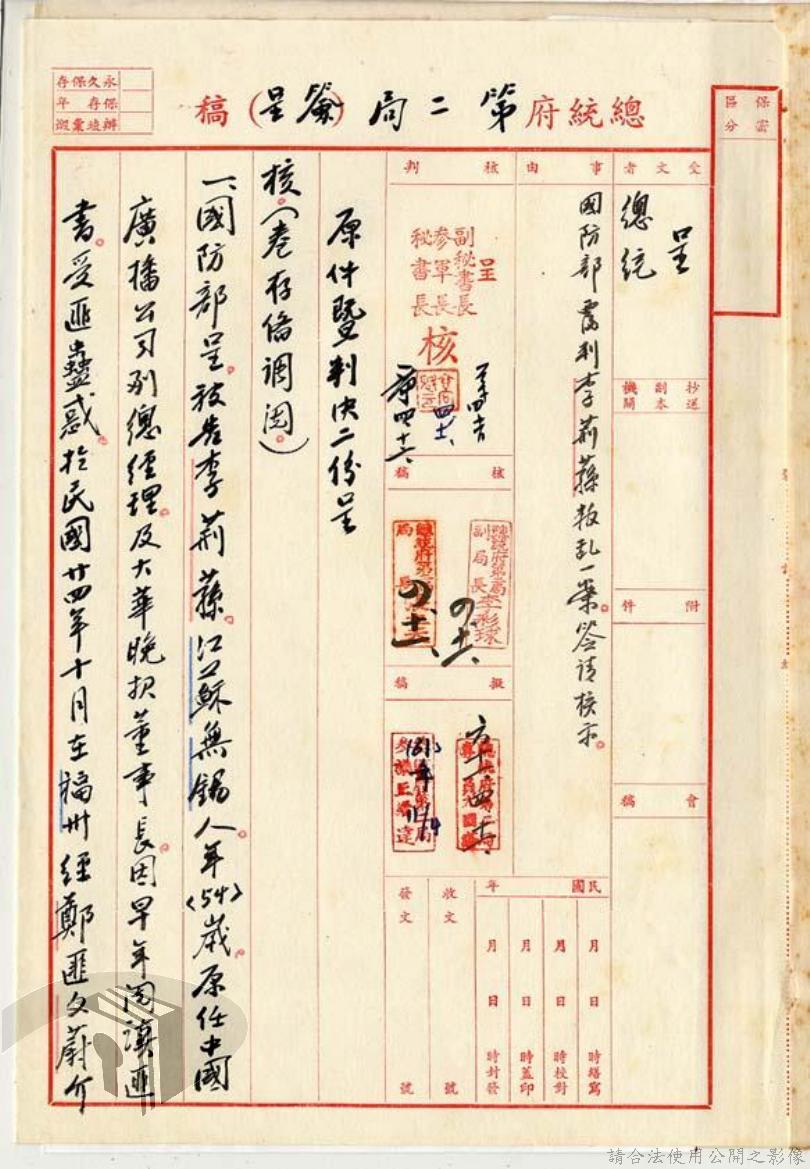 總統府第二局(簽呈)稿
永久保存
保存年
辦竣彙燬
保密區分
受文者
總統
呈
抄送副本機關
附件
會稿
事由
國防部覆判李荊蓀叛亂一案簽請核示。
核判
呈
副秘書長
參軍長
秘書長
核
核稿
總統府第二局副局長李彩球
四、十六、
擬稿
民國年
月日時繕寫
月日時校對
月日時蓋印
月日時封發
收文號
發文號
原件暨判決二份呈
核。(卷存備調閱。)
一、國防部呈。被告李荊蓀。江蘇無錫人。年<54>歲。原任中國
廣播公司副總經理。及大華晚報董事長。因早年閱讀匪
書。受匪蠱惑。於民國廿四年十月在福州經鄭匪文蔚介
請合法使用公開之影像